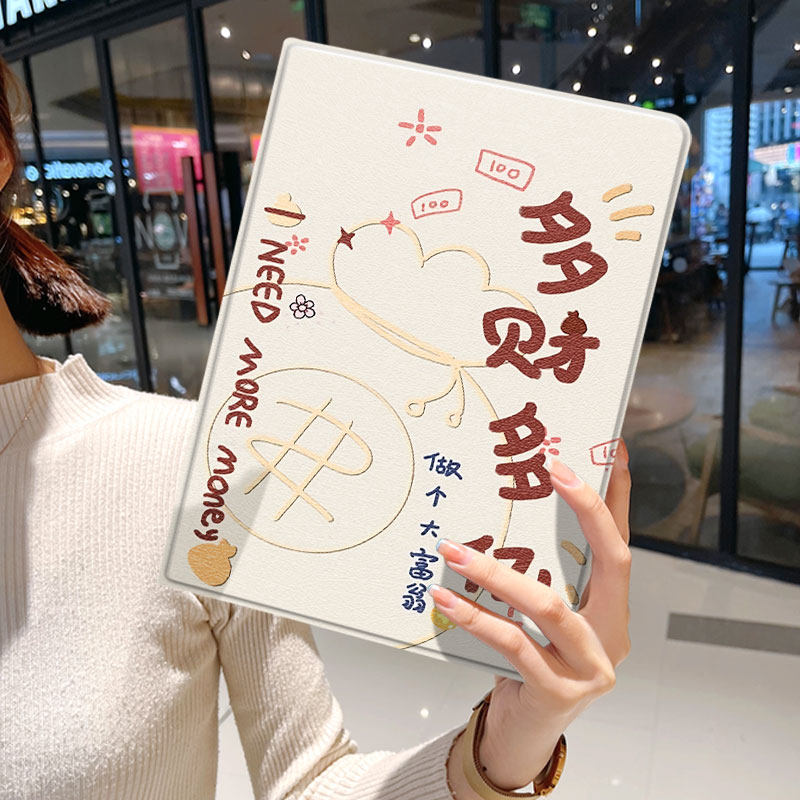 100
100
100
I NEED MORE MONEY
多财多亿
做个大富翁
NOW